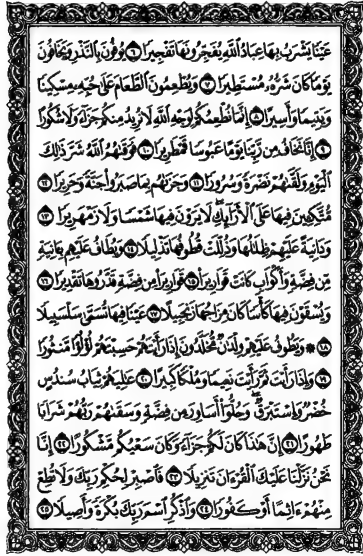 عَيْنًا يَشْرَبُ بِهَا عِبَادُ اللَّهِ يُفَجِّرُونَهَا تَفْجِيرًا ٦ يُوفُونَ بِالنَّذْرِ وَيَخَافُونَ
يَوْمًا كَانَ شَرُّهُ مُسْتَطِيرًا ٧ وَيُطْعِمُونَ الطَّعَامَ عَلَىٰ حُبِّهِ مِسْكِينًا
وَيَتِيمًا وَأَسِيرًا ٨ إِنَّمَا نُطْعِمُكُمْ لِوَجْهِ اللَّهِ لَا نُرِيدُ مِنكُمْ جَزَاءً وَلَا شُكُورًا
٩ إِنَّا نَخَافُ مِن رَّبِّنَا يَوْمًا عَبُوسًا قَمْطَرِيرًا ١٠ فَوَقَىٰهُمُ اللَّهُ شَرَّ ذَٰلِكَ
الْيَوْمِ وَلَقَّىٰهُمْ نَضْرَةً وَسُرُورًا ١١ وَجَزَىٰهُم بِمَا صَبَرُوا جَنَّةً وَحَرِيرًا ١٢
مُّتَّكِئِينَ فِيهَا عَلَى الْأَرَائِكِ لَا يَرَوْنَ فِيهَا شَمْسًا وَلَا زَمْهَرِيرًا ١٣
وَدَانِيَةً عَلَيْهِمْ ظِلَالُهَا وَذُلِّلَتْ قُطُوفُهَا تَذْلِيلًا ١٤ وَيُطَافُ عَلَيْهِم بِآنِيَةٍ
مِّن فِضَّةٍ وَأَكْوَابٍ كَانَتْ قَوَارِيرَا ١٥ قَوَارِيرَا مِن فِضَّةٍ قَدَّرُوهَا تَقْدِيرًا ١٦
وَيُسْقَوْنَ فِيهَا كَأْسًا كَانَ مِزَاجُهَا زَنجَبِيلًا ١٧ عَيْنًا فِيهَا تُسَمَّىٰ سَلْسَبِيلًا
١٨ ۞ وَيَطُوفُ عَلَيْهِمْ وِلْدَانٌ مُّخَلَّدُونَ إِذَا رَأَيْتَهُمْ حَسِبْتَهُمْ لُؤْلُؤًا مَّنثُورًا
١٩ وَإِذَا رَأَيْتَ ثَمَّ رَأَيْتَ نَعِيمًا وَمُلْكًا كَبِيرًا ٢٠ عَالِيَهُمْ ثِيَابُ سُندُسٍ
خُضْرٌ وَإِسْتَبْرَقٌ وَحُلُّوا أَسَاوِرَ مِن فِضَّةٍ وَسَقَىٰهُمْ رَبُّهُمْ شَرَابًا
طَهُورًا ٢١ إِنَّ هَٰذَا كَانَ لَكُمْ جَزَاءً وَكَانَ سَعْيُكُم مَّشْكُورًا ٢٢ إِنَّا
نَحْنُ نَزَّلْنَا عَلَيْكَ الْقُرْءَانَ تَنزِيلًا ٢٣ فَاصْبِرْ لِحُكْمِ رَبِّكَ وَلَا تُطِعْ
مِنْهُمْ ءَاثِمًا أَوْ كَفُورًا ٢٤ وَاذْكُرِ اسْمَ رَبِّكَ بُكْرَةً وَأَصِيلًا ٢٥